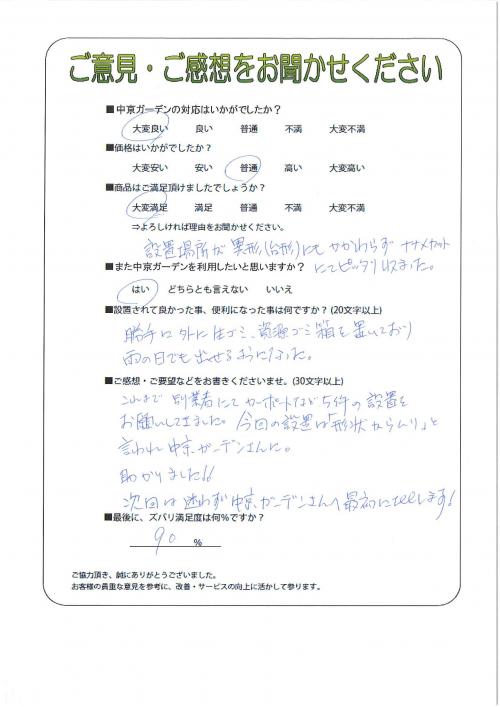 ご意見・ご感想をお聞かせください
■中京ガーデンの対応はいかがでしたか？
大変良い 良い 普通 不満 大変不満
■価格はいかがでしたか？
大変安い 安い 普通 高い 大変高い
■商品はご満足頂けましたでしょうか？
大変満足 満足 普通 不満 大変不満
⇒よろしければ理由をお聞かせください。
設置場所が異形(台形)にもかかわらずナナメカット
にてピッタリ収まりました。
■また中京ガーデンを利用したいと思いますか？
はい どちらとも言えない いいえ
■設置されて良かった事、便利になった事は何ですか？(20文字以上)
勝手口外に生ゴミ、資源ゴミ箱を置いており
雨の日でも出せるようになった。
■ご感想・ご要望などをお書きくださいませ。(30文字以上)
これまで別業者にてカーポートなど5件の設置を
お願いしてきました。今回の設置は「形状からムリ」と
言われ中京ガーデンさんに。
助かりました!!
次回は迷わず中京ガーデンさんへ最初にtelします!
■最後に、ズバリ満足度は何％ですか？
90 %
ご協力頂き、誠にありがとうございました。
お客様の貴重な意見を参考に、改善・サービスの向上に活かして参ります。